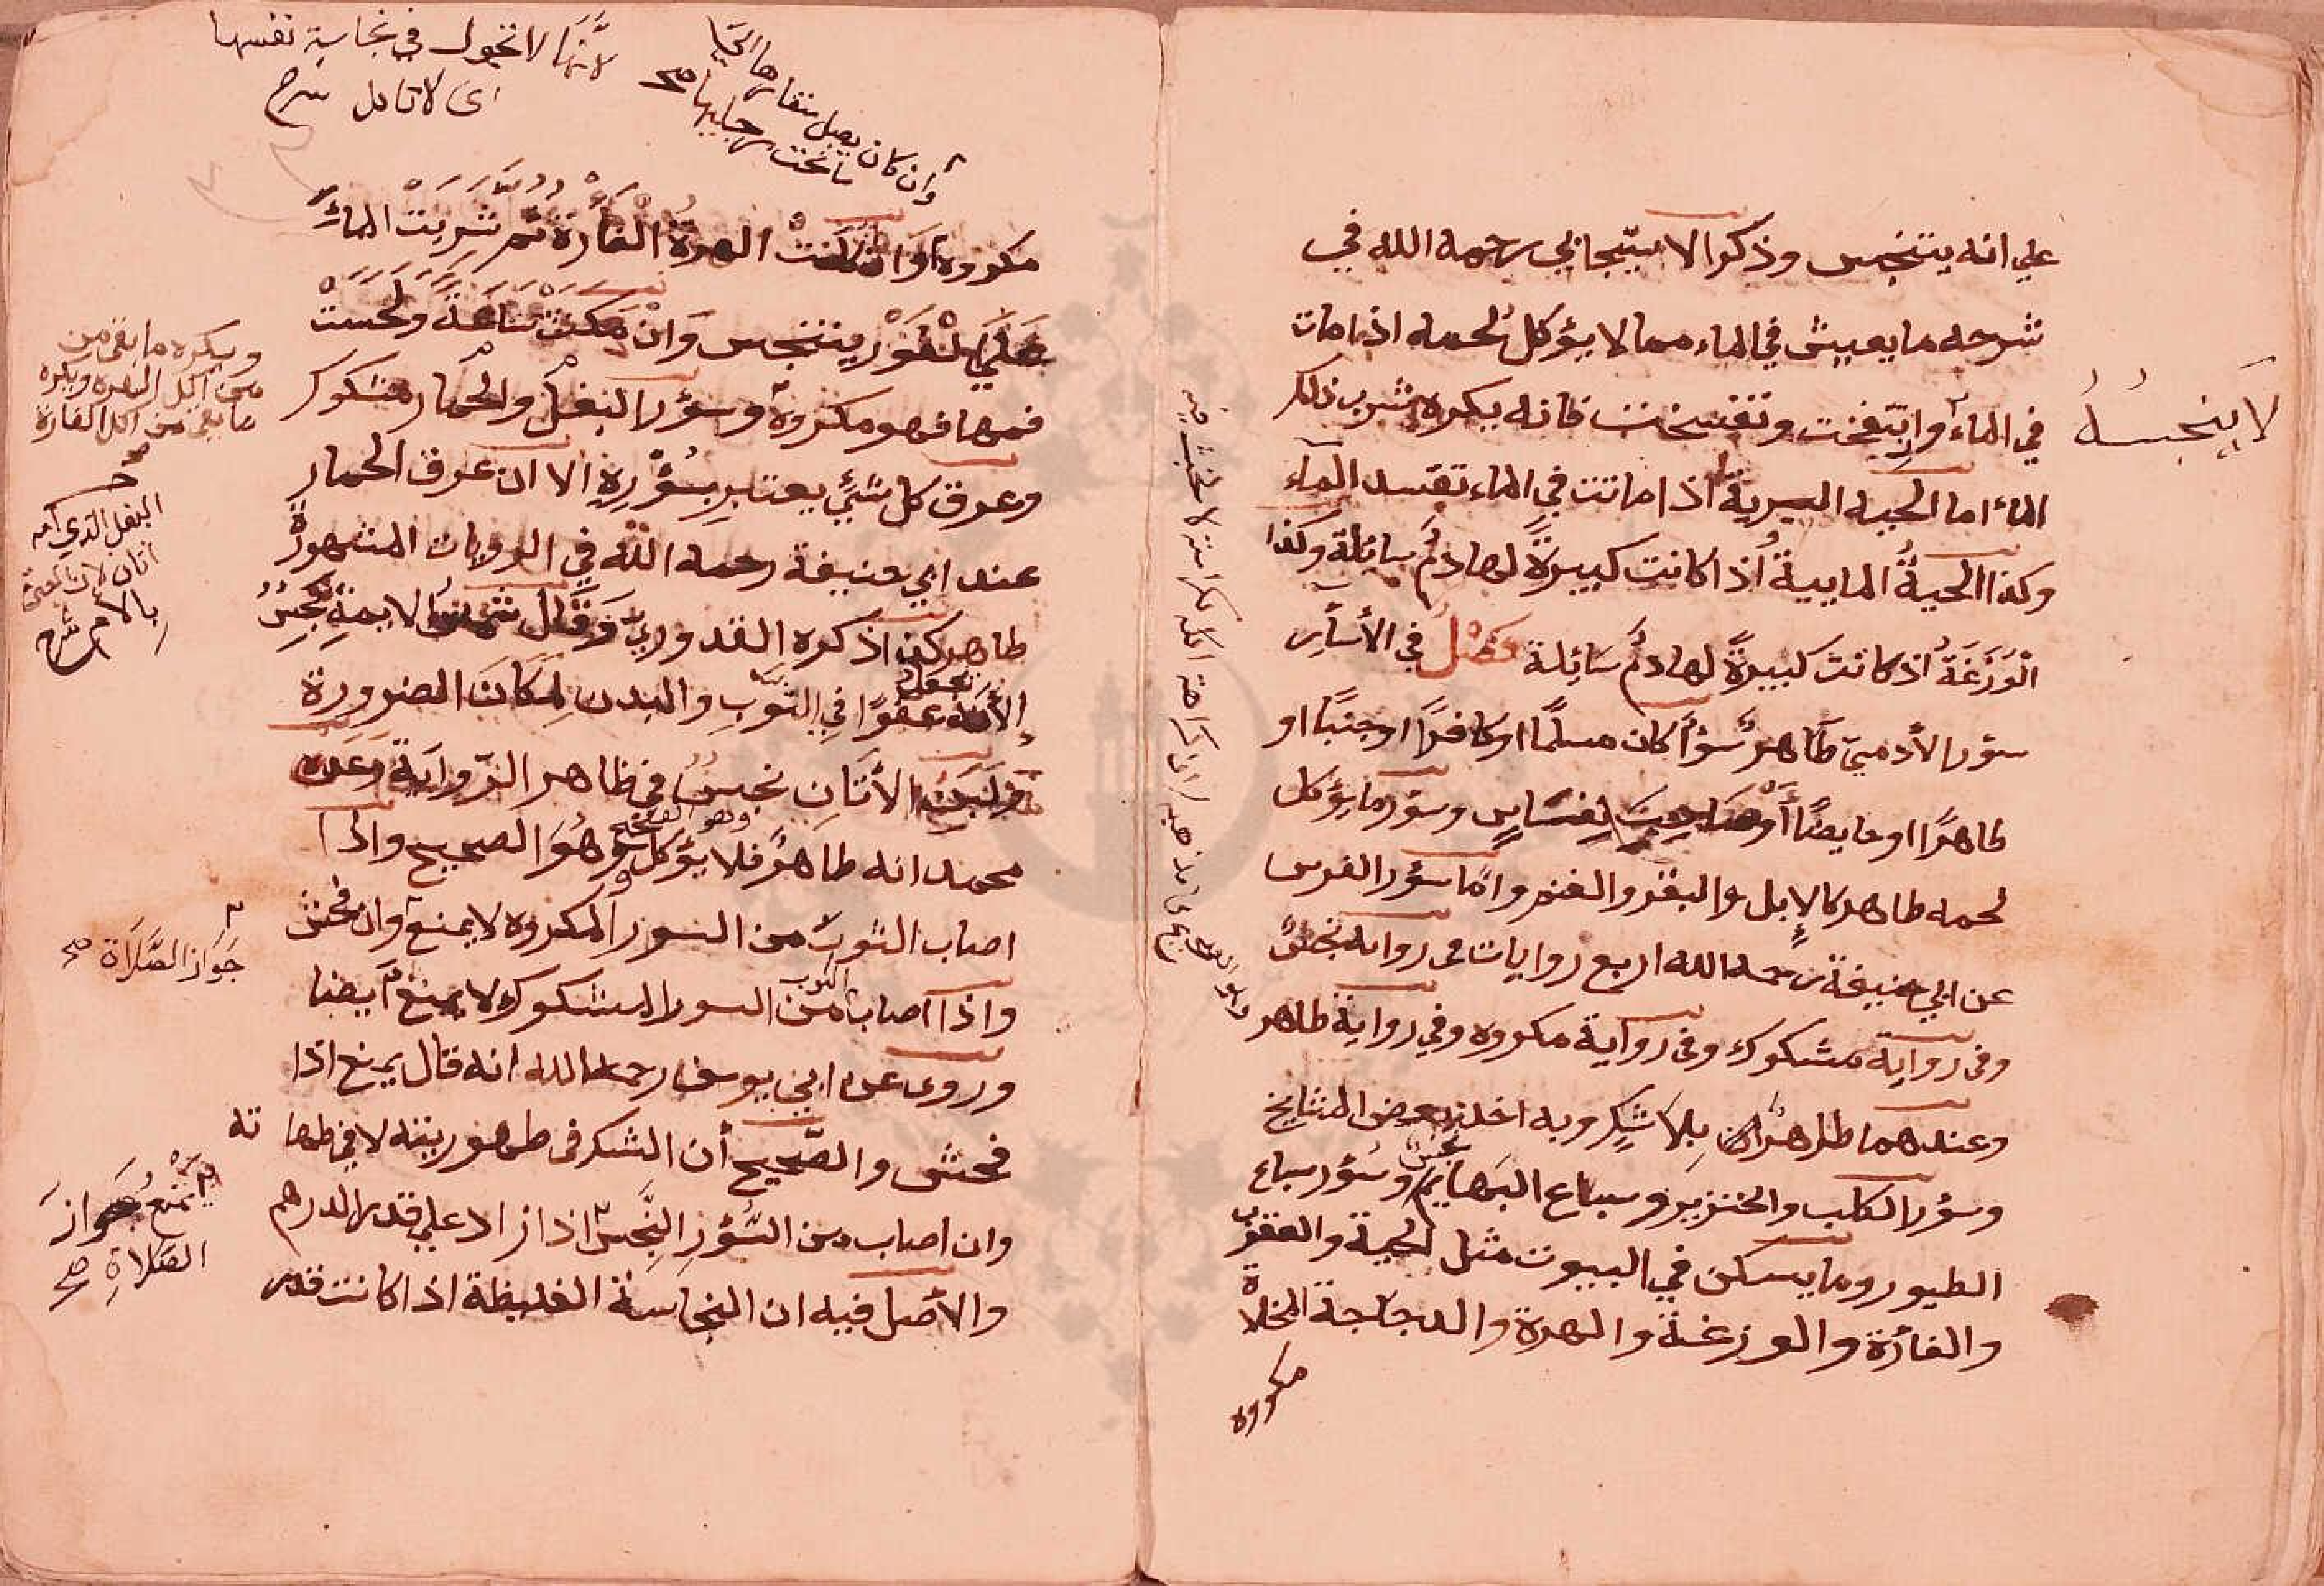 علي انه يتنجس وذكر الاسبيجابي رحمه الله في
شرحه ما يعيش في الماء مما لا يؤكل لحمه اذا مات
في الماء وانتفخت وتفسخت فانه يكره شرب ذلك
لا ينجسه
الماء اما الحية البرية اذا ماتت في الماء تفسد الماء
وكذا الحية المايية اذا كانت كبيرة لها دم سائلة وكذا
الوزغة اذ كانت كبيرة لها دم سائلة فصل في الأسار
سؤر الأدمي طاهر سؤا كان مسلما او كافرا او جنبا او
طاهرا او حايضا أو نفساس وسؤر ما يؤكل
لحمه طاهر كالإبل والبقر والغنم واما سؤر الفرس
عن ابي حنيفة رحمه الله اربع روايات في رواية نجس
وفي رواية مشكوك وفي رواية مكروه وفي رواية طاهر
وعندهما طاهر بلا شك وبه اخذ بعض المشايخ
وسؤر الكلب والخنزير وسباع البهايم نجس وسؤر سباع
الطيور وما يسكن في البيوت مثل الحية والعقرب
والفأرة والوزغة والهرة والدجاجة المخلاة
مكروه
لانها لا تجول في نجاسة نفسها
اى لا تاكل شرح
وان كان يصل منقارها الي
ما تحت رجليها صح
مكروه وان اكلت الهرة الفأرة ثم شربت الماء
علي الفور يتنجس وان مكثت ساعة ولحست
فمها فهو مكروه وسؤر البغل والحمار مشكوك
وعرق كل شيء يعتبر بسؤره الا ان عرق الحمار
عند ابي حنيفة رحمه الله في الروايات المشهورة
طاهر كذا ذكره القدوري وقال شمس الايمة نجس
إلا أنه جعل عفوا في الثوب والبدن لمكان الضرورة
ولبن الأتان نجس في ظاهر الرواية وعن
محمد انه طاهر فلا يؤكل وهو الصحيح واذا
اصاب الثوب من السور المكروه لا يمنع وان فحش
واذا اصاب الثوب من السور المشكوك لا يمنع ايضا
وروى عن ابي يوسف رحمه الله انه قال يمنع اذا
فحش والصحيح أن الشك في طهوريته لا في طهارته
وان اصاب من السؤر النجس اذا زاد علي قدر الدرهم
والاصل فيه ان النجاسة الغليظة اذا كانت قدر
ويكره ما بقي من
من اكل الهره ويكره
ما بقي من اكل الفارة
البغل الذي امه
اتان لان العبرة
بالام شرح
جواز الصلاة صح
يمنع جواز
الصلاة صح